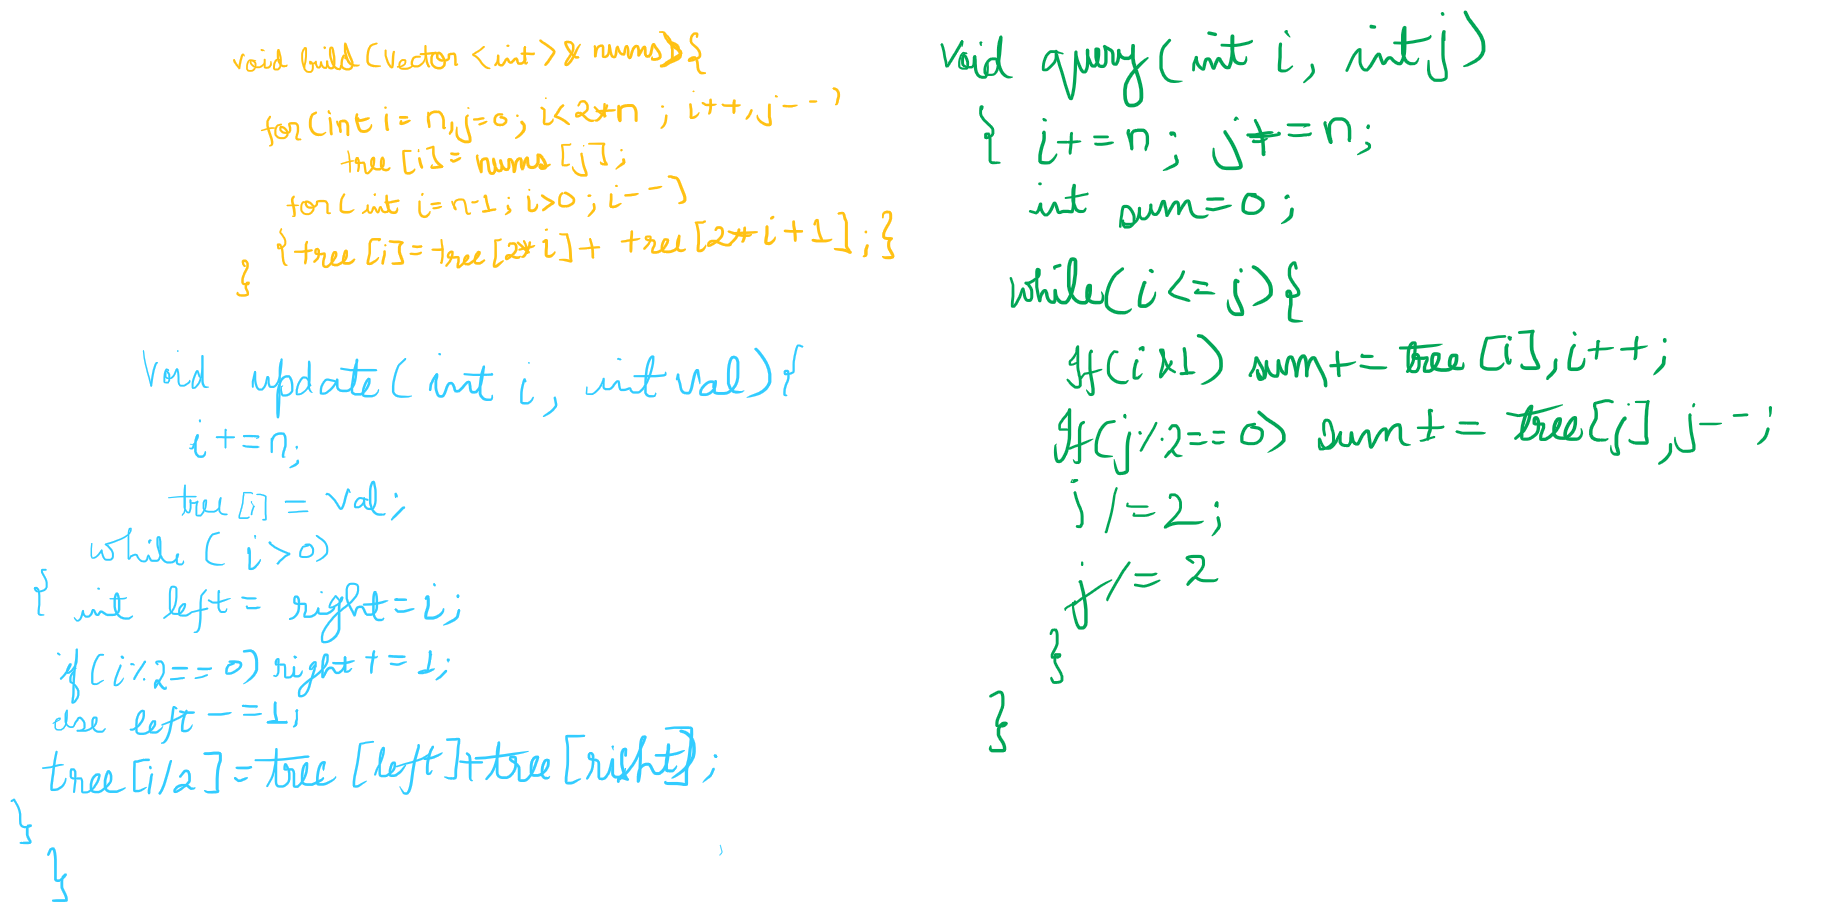 void build (vector <int>& nums){
for(int i = n, j=0; i<2*n ; i++, j--)
tree [i] = nums [j];
for( int i=n-1; i>0; i--)
{tree [i]=tree[2*i]+ tree[2*i+1];}
}
void update( int i, int val){
i+=n;
tree [i] = val;
while ( i>0)
{ int left = right=i;
if(i%2==0) right+=1;
else left -=1;
tree[i/2]=tree [left]+tree[right];
}
}
void query( int i, int j)
{ i+=n; j+=n;
int sum=0;
while(i<=j){
If(i&1) sum+= tree [i],i++;
If(j%2==0) sum+= tree[j],j--;
i/=2;
j/=2
}
}